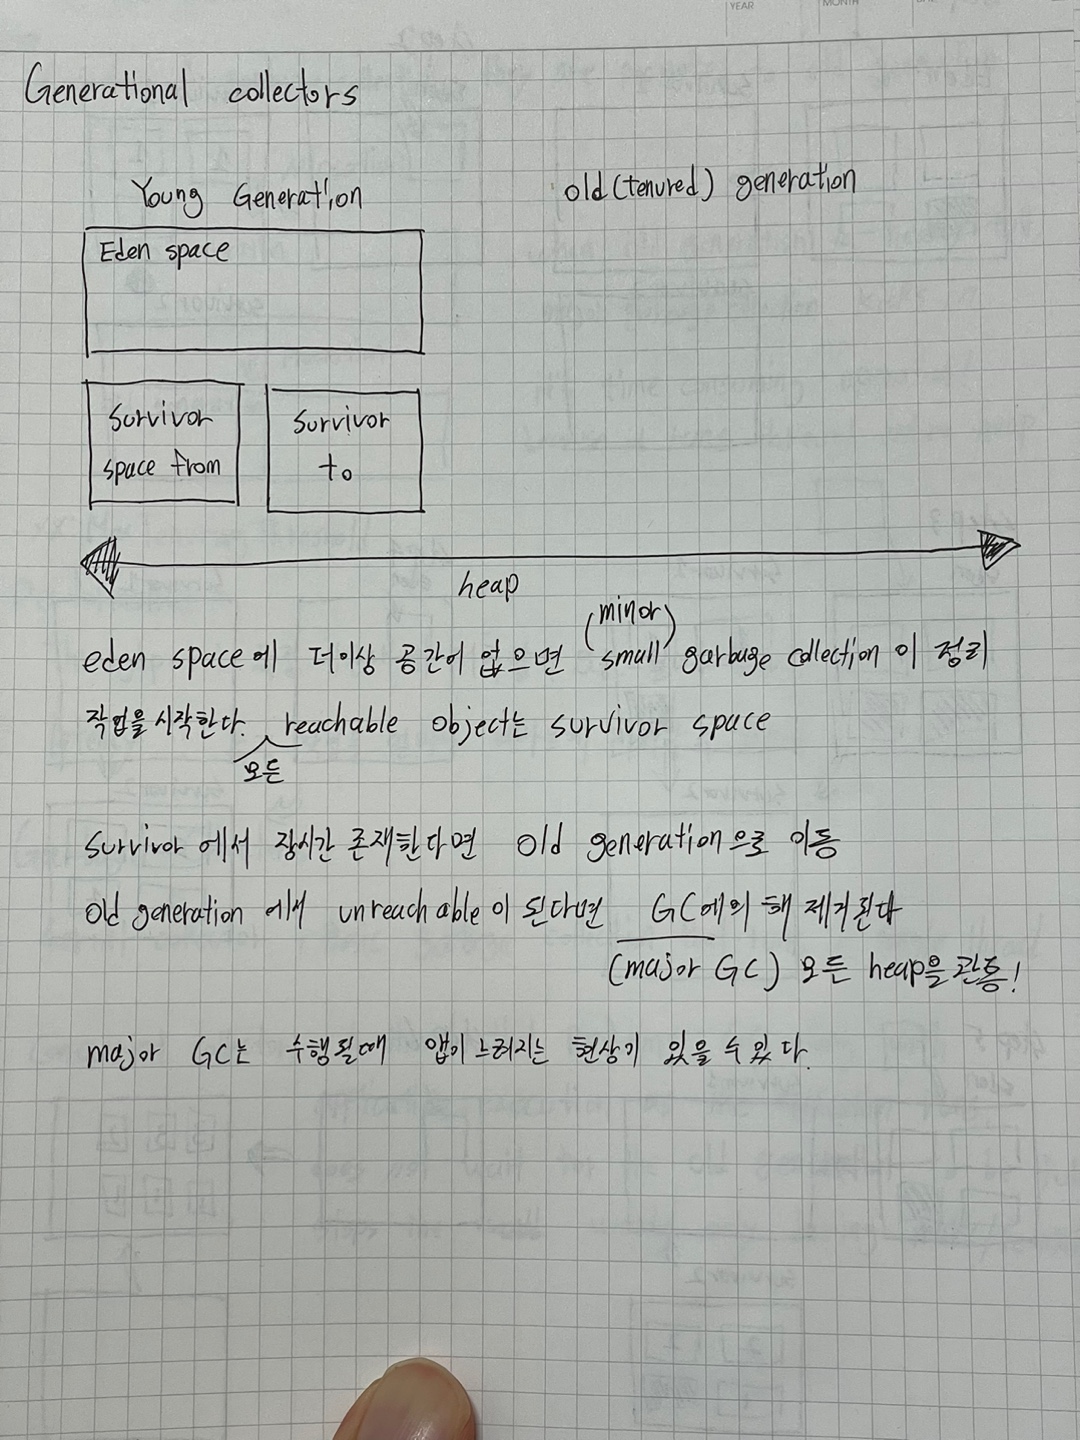 YEAR
MONTH
Generational collectors
Young Generation
old(tenured) generation
Eden space
Survivor
space from
Survivor
to
heap
(minor)
eden space에 더이상 공간이 없으면 small garbage collection 이 정리
작업을 시작한다. reachable object는 survivor space
모든
survivor 에서 장시간 존재한다면 old generation으로 이동
old generation 에서 unreachable이 된다면 GC에의해 제거된다
(major GC) 모든 heap을 관통!
major GC는 수행될때 앱이 느려지는 현상이 있을 수 있다.